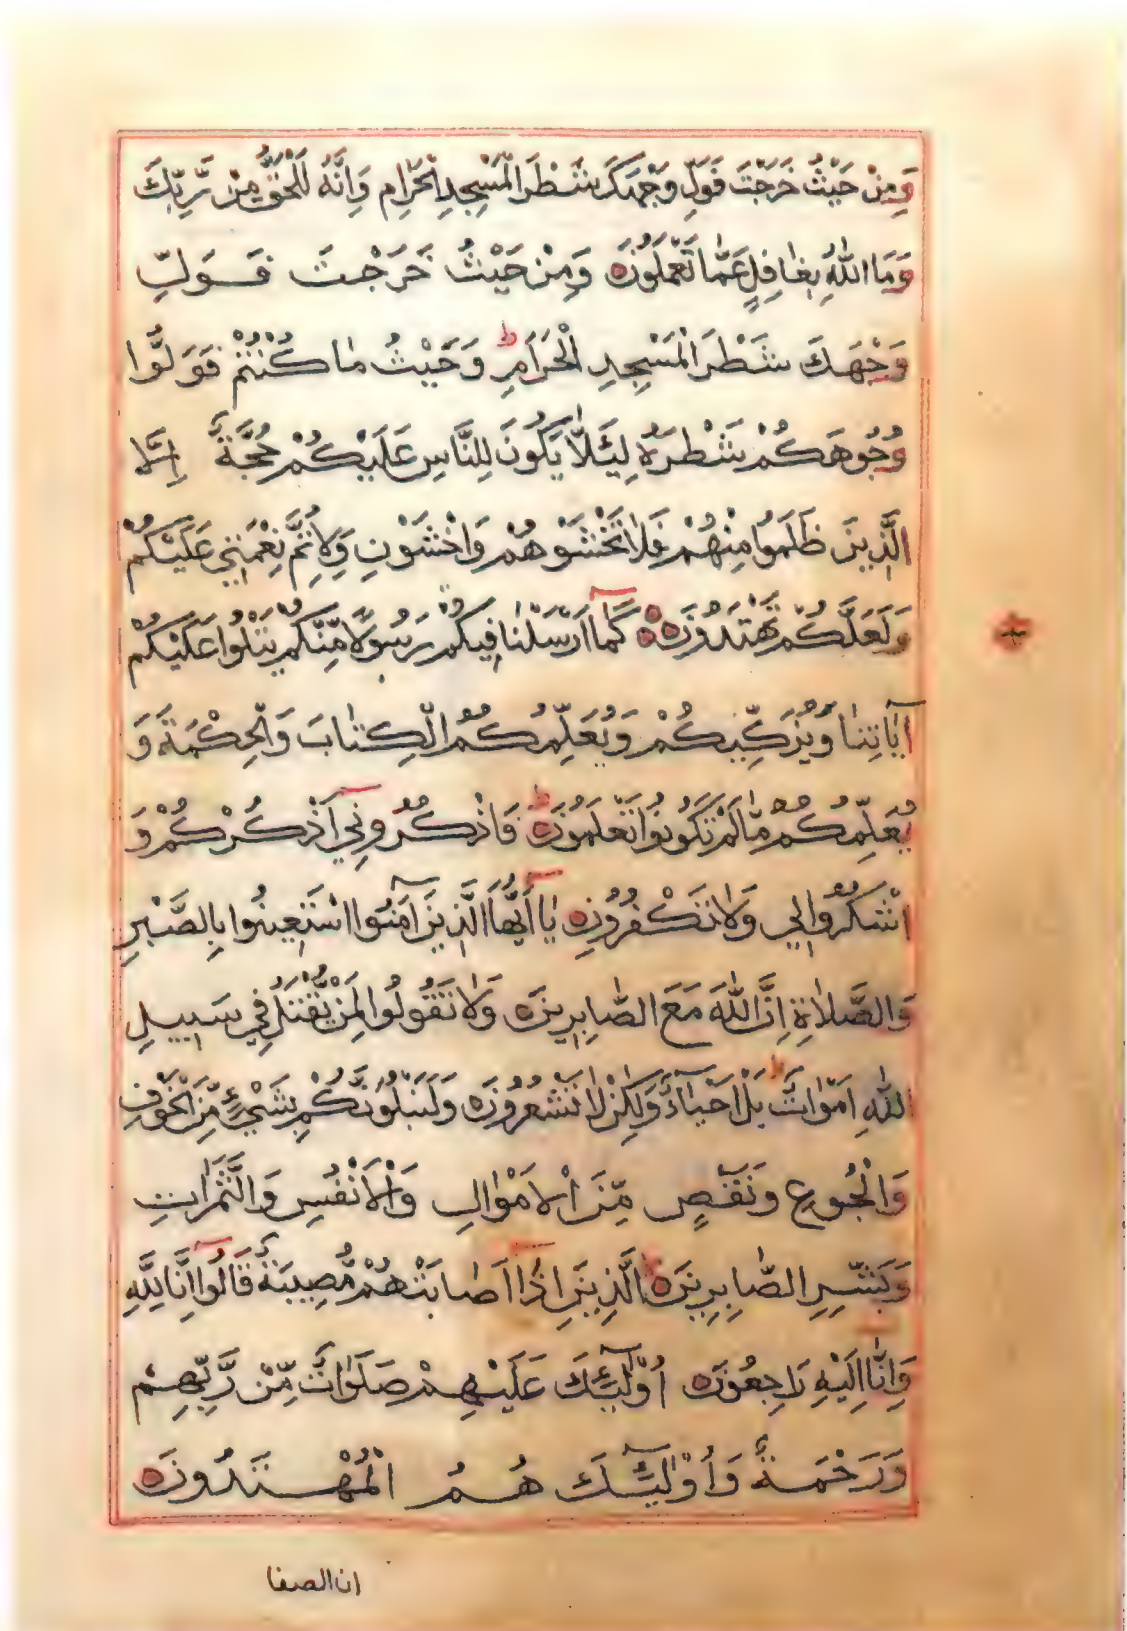 وَمِنْ حَيْثُ خَرَجْتَ فَوَلِّ وَجْهَكَ شَطْرَ الْمَسْجِدِ الْحَرَامِ وَإِنَّهُ لَلْحَقُّ مِنْ رَّبِّكَ
وَمَا اللّٰهُ بِغَافِلٍ عَمَّا تَعْمَلُونَ ۝ وَمِنْ حَيْثُ خَرَجْتَ فَوَلِّ
وَجْهَكَ شَطْرَ الْمَسْجِدِ الْحَرَامِ ؕ وَحَيْثُ مٰا كُنْتُمْ فَوَلُّوا
وُجُوهَكُمْ شَطْرَهُ لِئَلَّا يَكُونَ لِلنَّاسِ عَلَيْكُمْ حُجَّةٌ إِلَّا
الَّذِينَ ظَلَمُوا مِنْهُمْ فَلَا تَخْشَوْهُمْ وَاخْشَوْنِي وَلِأُتِمَّ نِعْمَتِي عَلَيْكُمْ
وَلَعَلَّكُمْ تَهْتَدُونَ ۝ كَمٰآ اَرْسَلْنٰا فِيكُمْ رَسُولًا مِّنْكُمْ يَتْلُوا عَلَيْكُمْ
آيٰاتِنٰا وَيُزَكِّيكُمْ وَيُعَلِّمُكُمُ الْكِتٰابَ وَالْحِكْمَةَ وَ
يُعَلِّمُكُمْ مَّا لَمْ تَكُونُوا تَعْلَمُونَ ۝ فَاذْكُرُونِيٓ اَذْكُرْكُمْ وَ
اشْكُرُوا لِي وَلٰا تَكْفُرُونِ ۝ يٰآ اَيُّهَا الَّذِينَ آمَنُوا اسْتَعِينُوا بِالصَّبْرِ
وَالصَّلٰاةِ اِنَّ اللّٰهَ مَعَ الصّٰابِرِينَ ۝ وَلٰا تَقُولُوا لِمَنْ يُّقْتَلُ فِي سَبِيلِ
اللّٰهِ اَمْوٰاتٌ ؕ بَلْ اَحْيٰآءٌ وَلٰكِنْ لٰا تَشْعُرُونَ ۝ وَلَنَبْلُوَنَّكُمْ بِشَيْءٍ مِّنَ الْخَوْفِ
وَالْجُوعِ وَنَقْصٍ مِّنَ الْاَمْوٰالِ وَالْاَنْفُسِ وَالثَّمَرٰاتِ
وَبَشِّرِ الصّٰابِرِينَ ۝ الَّذِينَ اِذٰآ اَصٰابَتْهُمْ مُّصِيبَةٌ قَالُوٓا اِنَّا لِلّٰهِ
وَاِنّٰا اِلَيْهِ رَاجِعُونَ ۝ اُوْلٰٓئِكَ عَلَيْهِمْ صَلَوٰاتٌ مِّنْ رَّبِّهِمْ
وَرَحْمَةٌ وَاُوْلٰٓئِكَ هُمُ الْمُهْتَدُونَ ۝
ان الصفا